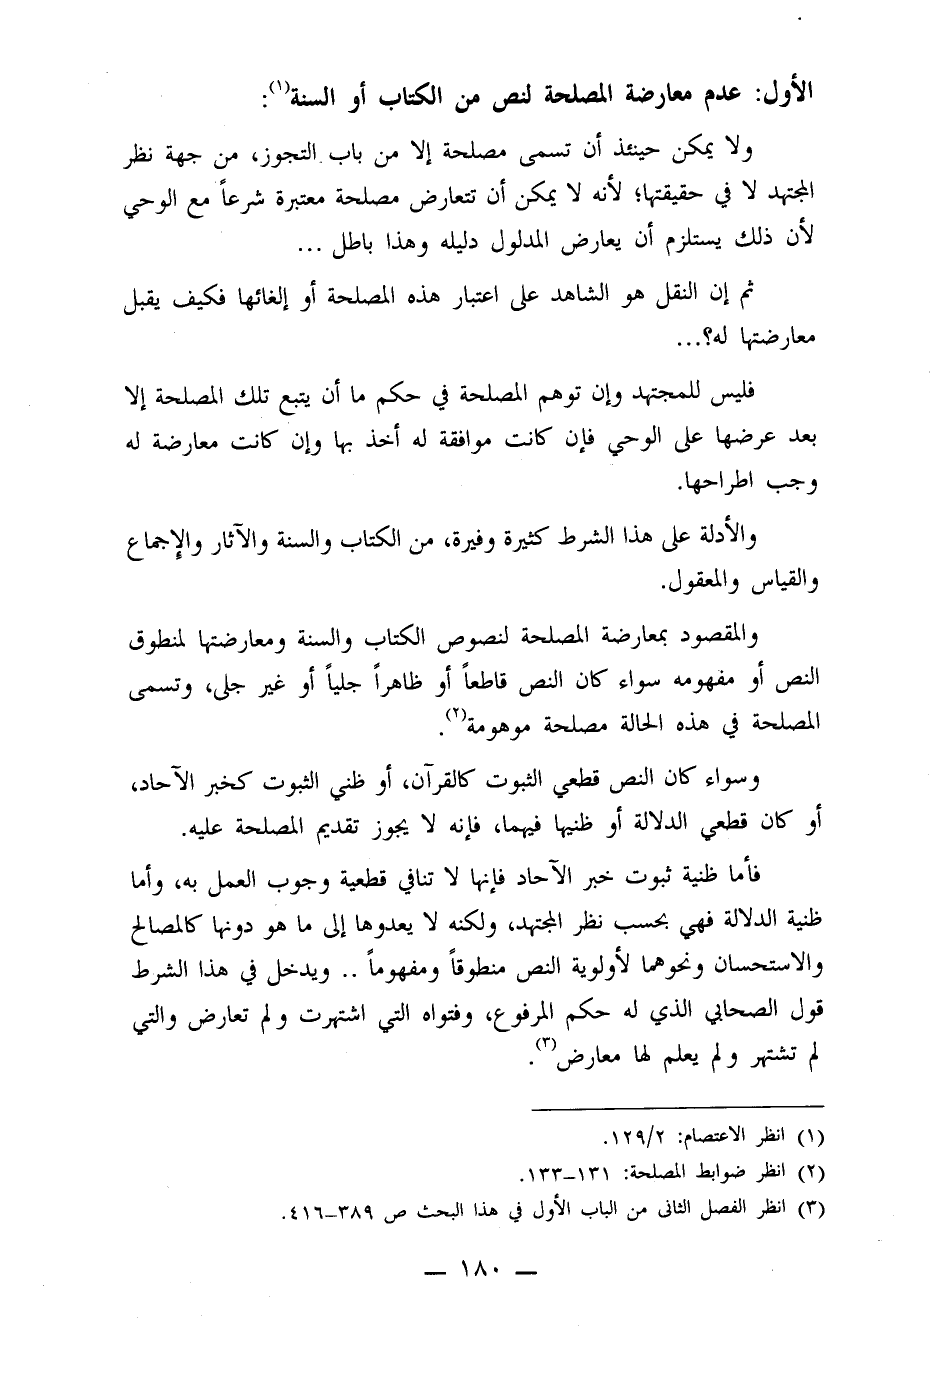 الأول: عدم معارضة المصلحة لنص من الكتاب أو السنة(١):
ولا يمكن حينئذ أن تسمى مصلحة إلا من باب التجوز، من جهة نظر
المجتهد لا في حقيقتها؛ لأنه لا يمكن أن تتعارض مصلحة معتبرة شرعاً مع الوحي
لأن ذلك يستلزم أن يعارض المدلول دليله وهذا باطل ...
ثم إن النقل هو الشاهد على اعتبار هذه المصلحة أو إلغائها فكيف يقبل
معارضتها له؟...
فليس للمجتهد وإن توهم المصلحة في حكم ما أن يتبع تلك المصلحة إلا
بعد عرضها على الوحي فإن كانت موافقة له أخذ بها وإن كانت معارضة له
وجب اطراحها.
والأدلة على هذا الشرط كثيرة وفيرة، من الكتاب والسنة والآثار والإجماع
والقياس والمعقول.
والمقصود بمعارضة المصلحة لنصوص الكتاب والسنة ومعارضتها لمنطوق
النص أو مفهومه سواء كان النص قاطعاً أو ظاهراً جلياً أو غير جلى، وتسمى
المصلحة في هذه الحالة مصلحة موهومة(٢).
وسواء كان النص قطعي الثبوت كالقرآن، أو ظني الثبوت كخبر الآحاد،
أو كان قطعي الدلالة أو ظنيها فيهما، فإنه لا يجوز تقديم المصلحة عليه.
فأما ظنية ثبوت خبر الآحاد فإنها لا تنافي قطعية وجوب العمل به، وأما
ظنية الدلالة فهي بحسب نظر المجتهد، ولكنه لا يعدوها إلى ما هو دونها كالمصالح
والاستحسان ونحوهما لأولوية النص منطوقاً ومفهوماً .. ويدخل في هذا الشرط
قول الصحابي الذي له حكم المرفوع، وفتواه التي اشتهرت ولم تعارض والتي
لم تشتهر ولم يعلم لها معارض(٣).
(١) انظر الاعتصام: ١٢٩/٢.
(٢) انظر ضوابط المصلحة: ١٣١–١٣٣.
(٣) انظر الفصل الثانى من الباب الأول في هذا البحث ص ٣٨٩–٤١٦.
— ١٨٠ —